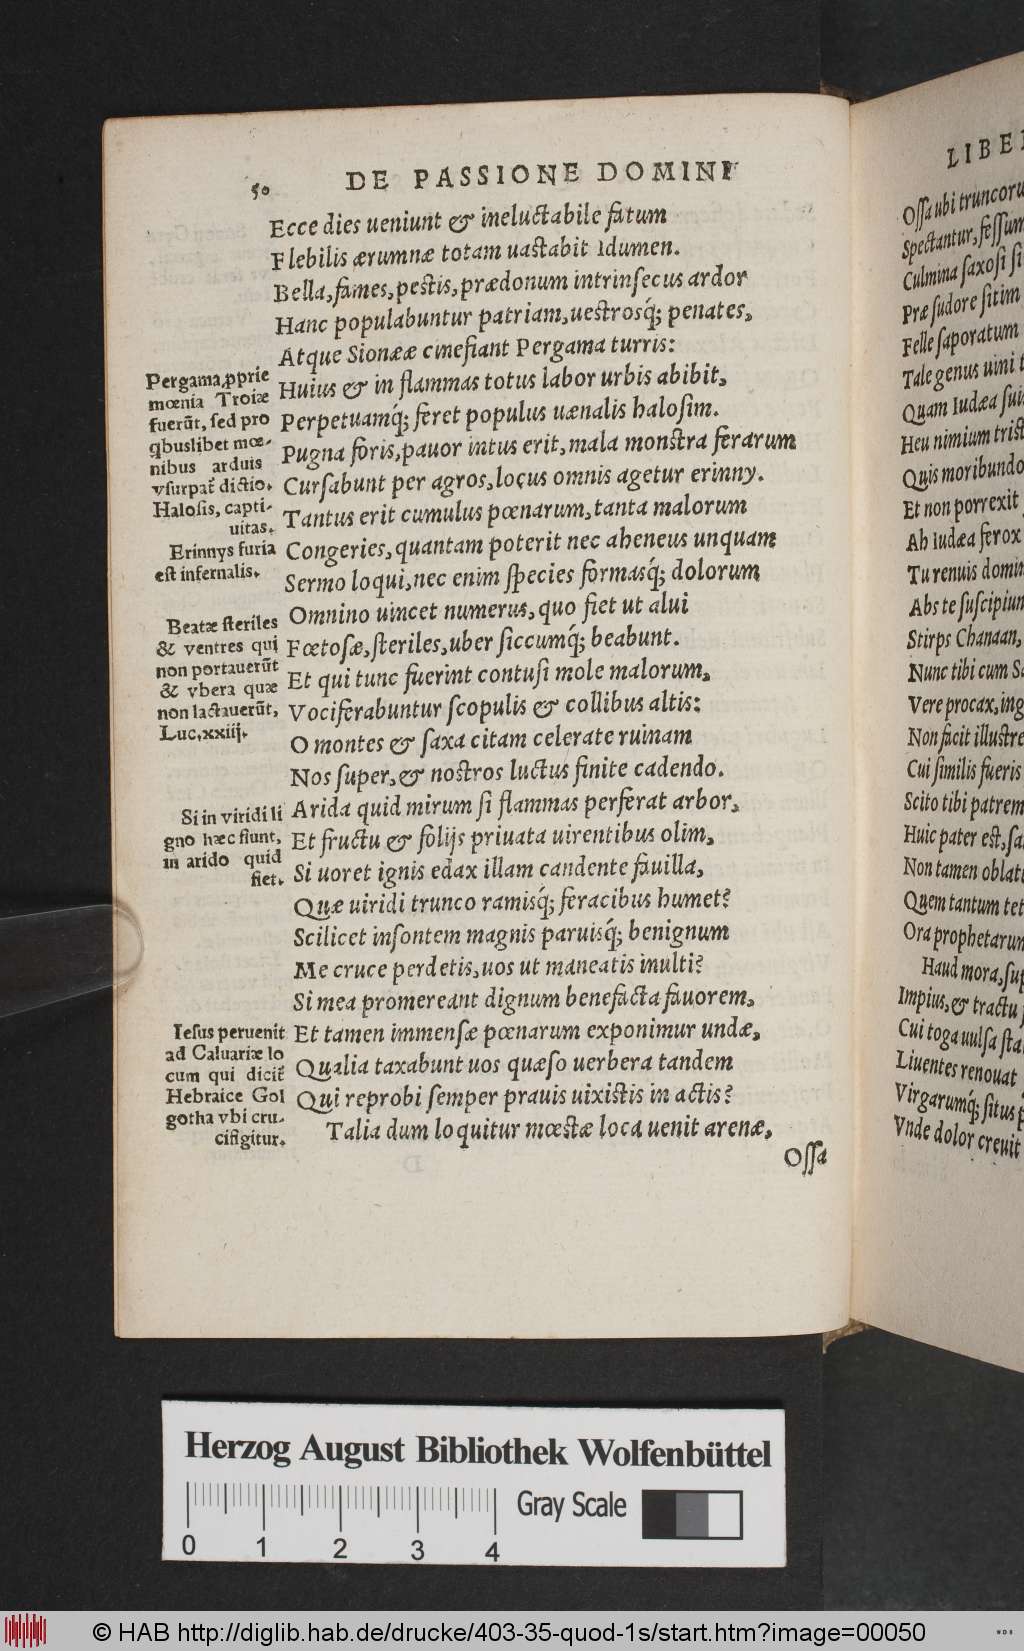 50 DE PASSIONE DOMINI
Ecce dies ueniunt & ineluctabile fatum
Flebilis ærumnæ totam uastabit Idumen.
Bella, fames, pestis, prædonum intrinsecus ardor
Hanc populabuntur patriam, uestrosq́; penates,
Atque Sionææ cinefiant Pergama turris:
Huius & in flammas totus labor urbis abibit,
Perpetuamq́; feret populus uænalis halosim.
Pugna foris, pauor intus erit, mala monstra ferarum
Cursabunt per agros, locus omnis agetur erinny.
Tantus erit cumulus pœnarum, tanta malorum
Congeries, quantam poterit nec aheneus unquam
Sermo loqui, nec enim species formasq́; dolorum
Omnino uincet numerus, quo fiet ut alui
Fœtosæ, steriles, uber siccumq́; beabunt.
Et qui tunc fuerint contusi mole malorum,
Vociferabuntur scopulis & collibus altis:
O montes & saxa citam celerate ruinam
Nos super, & nostros luctus finite cadendo.
Arida quid mirum si flammas perferat arbor,
Et fructu & folijs priuata uirentibus olim,
Si uoret ignis edax illam candente fauilla,
Quæ uiridi trunco ramisq́; feracibus humet?
Scilicet insontem magnis paruisq́; benignum
Me cruce perdetis, uos ut maneatis inulti?
Si mea promereant dignum benefacta fauorem,
Et tamen immensæ pœnarum exponimur undæ,
Qualia taxabunt uos quæso uerbera tandem
Qui reprobi semper prauis uixistis in actis?
Talia dum loquitur mœstæ loca uenit arenæ,
Ossa
Pergama, ꝓprie
mœnia Troiæ
fuerũt, sed pro
qbuslibet mœ-
nibus arduis
vsurpat̃ dictio.
Halosis, capti-
uitas.
Erinnys furia
est infernalis.
Beatæ steriles
& ventres qui
non portauerũt
& vbera quæ
non lactauerũt,
Luc. xxiij.
Si in viridi li
gno hæc fiunt,
in arido quid
fiet.
Iesus peruenit
ad Caluariæ lo
cum qui dicit̃
Hebraice Gol
gotha vbi cru-
cifigitur.
LIBE
Ossa ubi truncoru
Spectantur, fessum
Culmina saxosi si
Præ sudore sitim
Felle saporatum
Tale genus uini
Quam Iudæa sui
Heu nimium trist
Quis moribundo
Et non porrexit
Ab Iudæa ferox
Tu renuis domin
Abs te suscipiun
Stirps Chanaan,
Nunc tibi cum Sa
Vere procax, ing
Non facit illustre
Cui similis fueris
Scito tibi patrem
Huic pater est, sa
Non tamen oblat
Quem tantum tet
Ora prophetarun
Haud mora, sup
Impius, & tractu
Cui toga uulsa sta
Liuentes renouat
Virgarumq́; situs
Vnde dolor creuit
Herzog August Bibliothek Wolfenbüttel
Gray Scale
0 1 2 3 4
© HAB http://diglib.hab.de/drucke/403-35-quod-1s/start.htm?image=00050